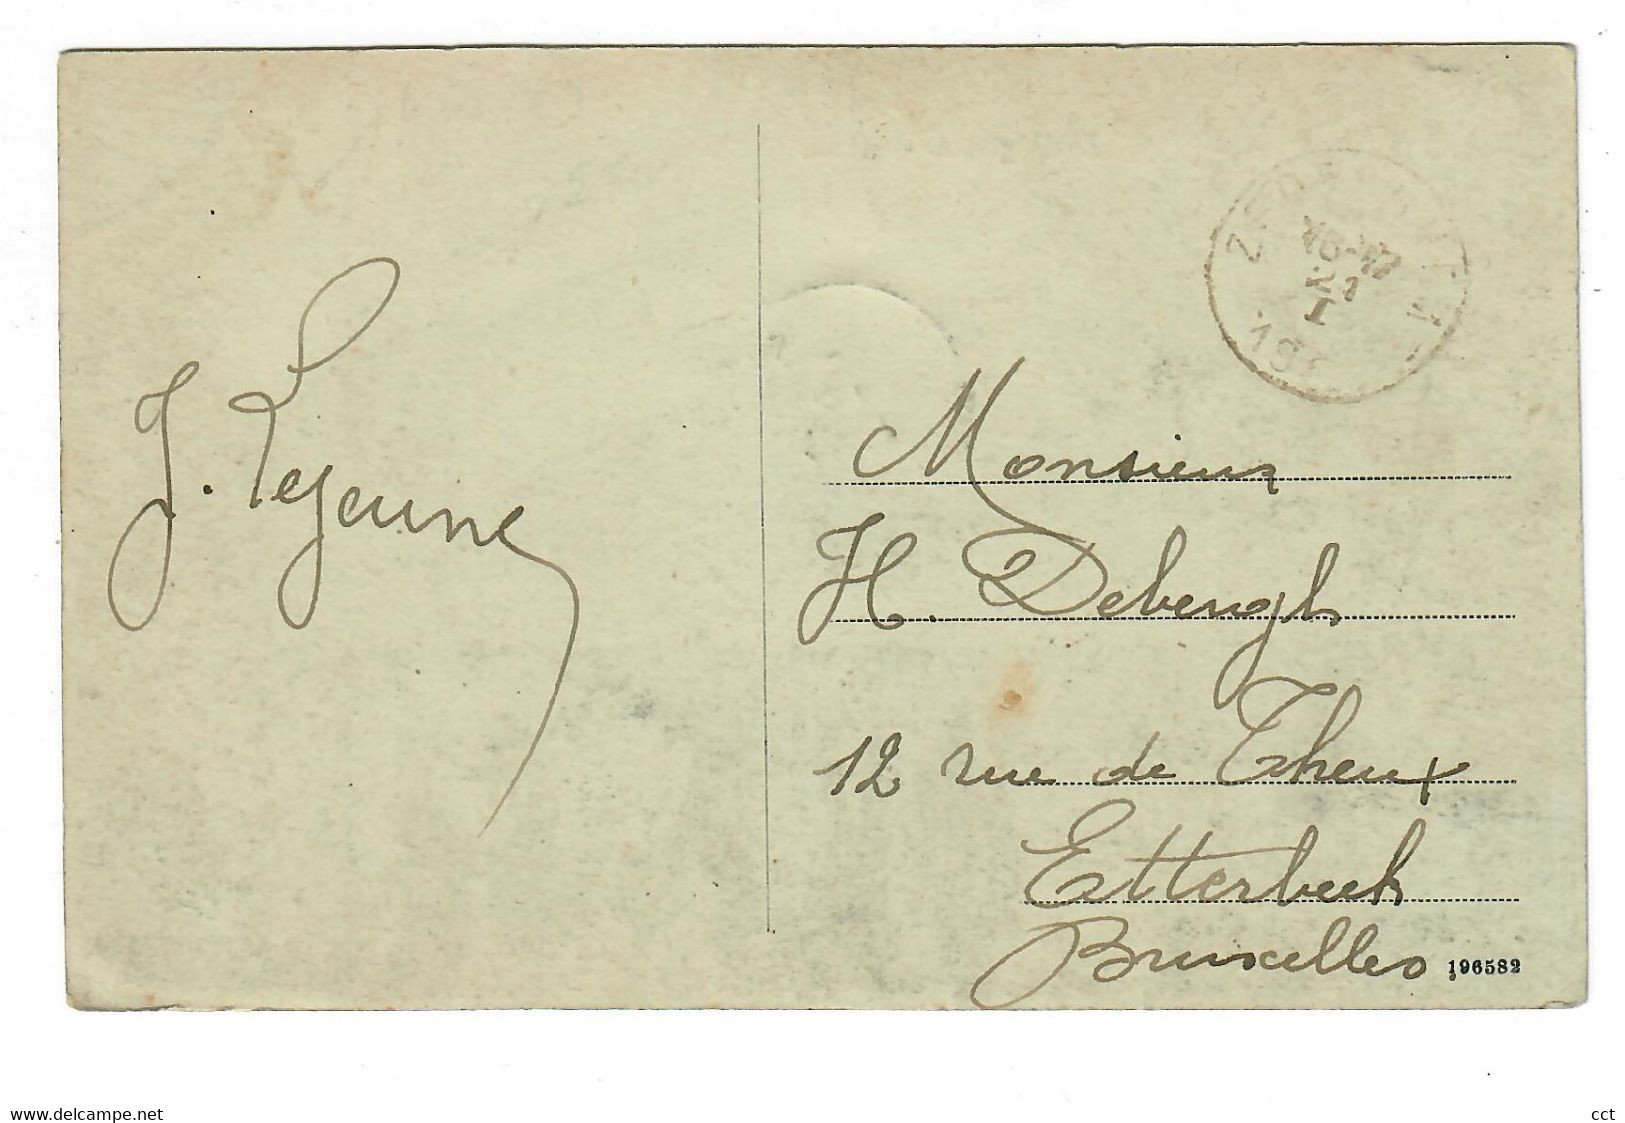 J. Lejeune
16-17
21
I
Monsieur
H. Debengh
12 rue de Theux
Etterbeek
Bruxelles
196582
www.delcampe.net
cct